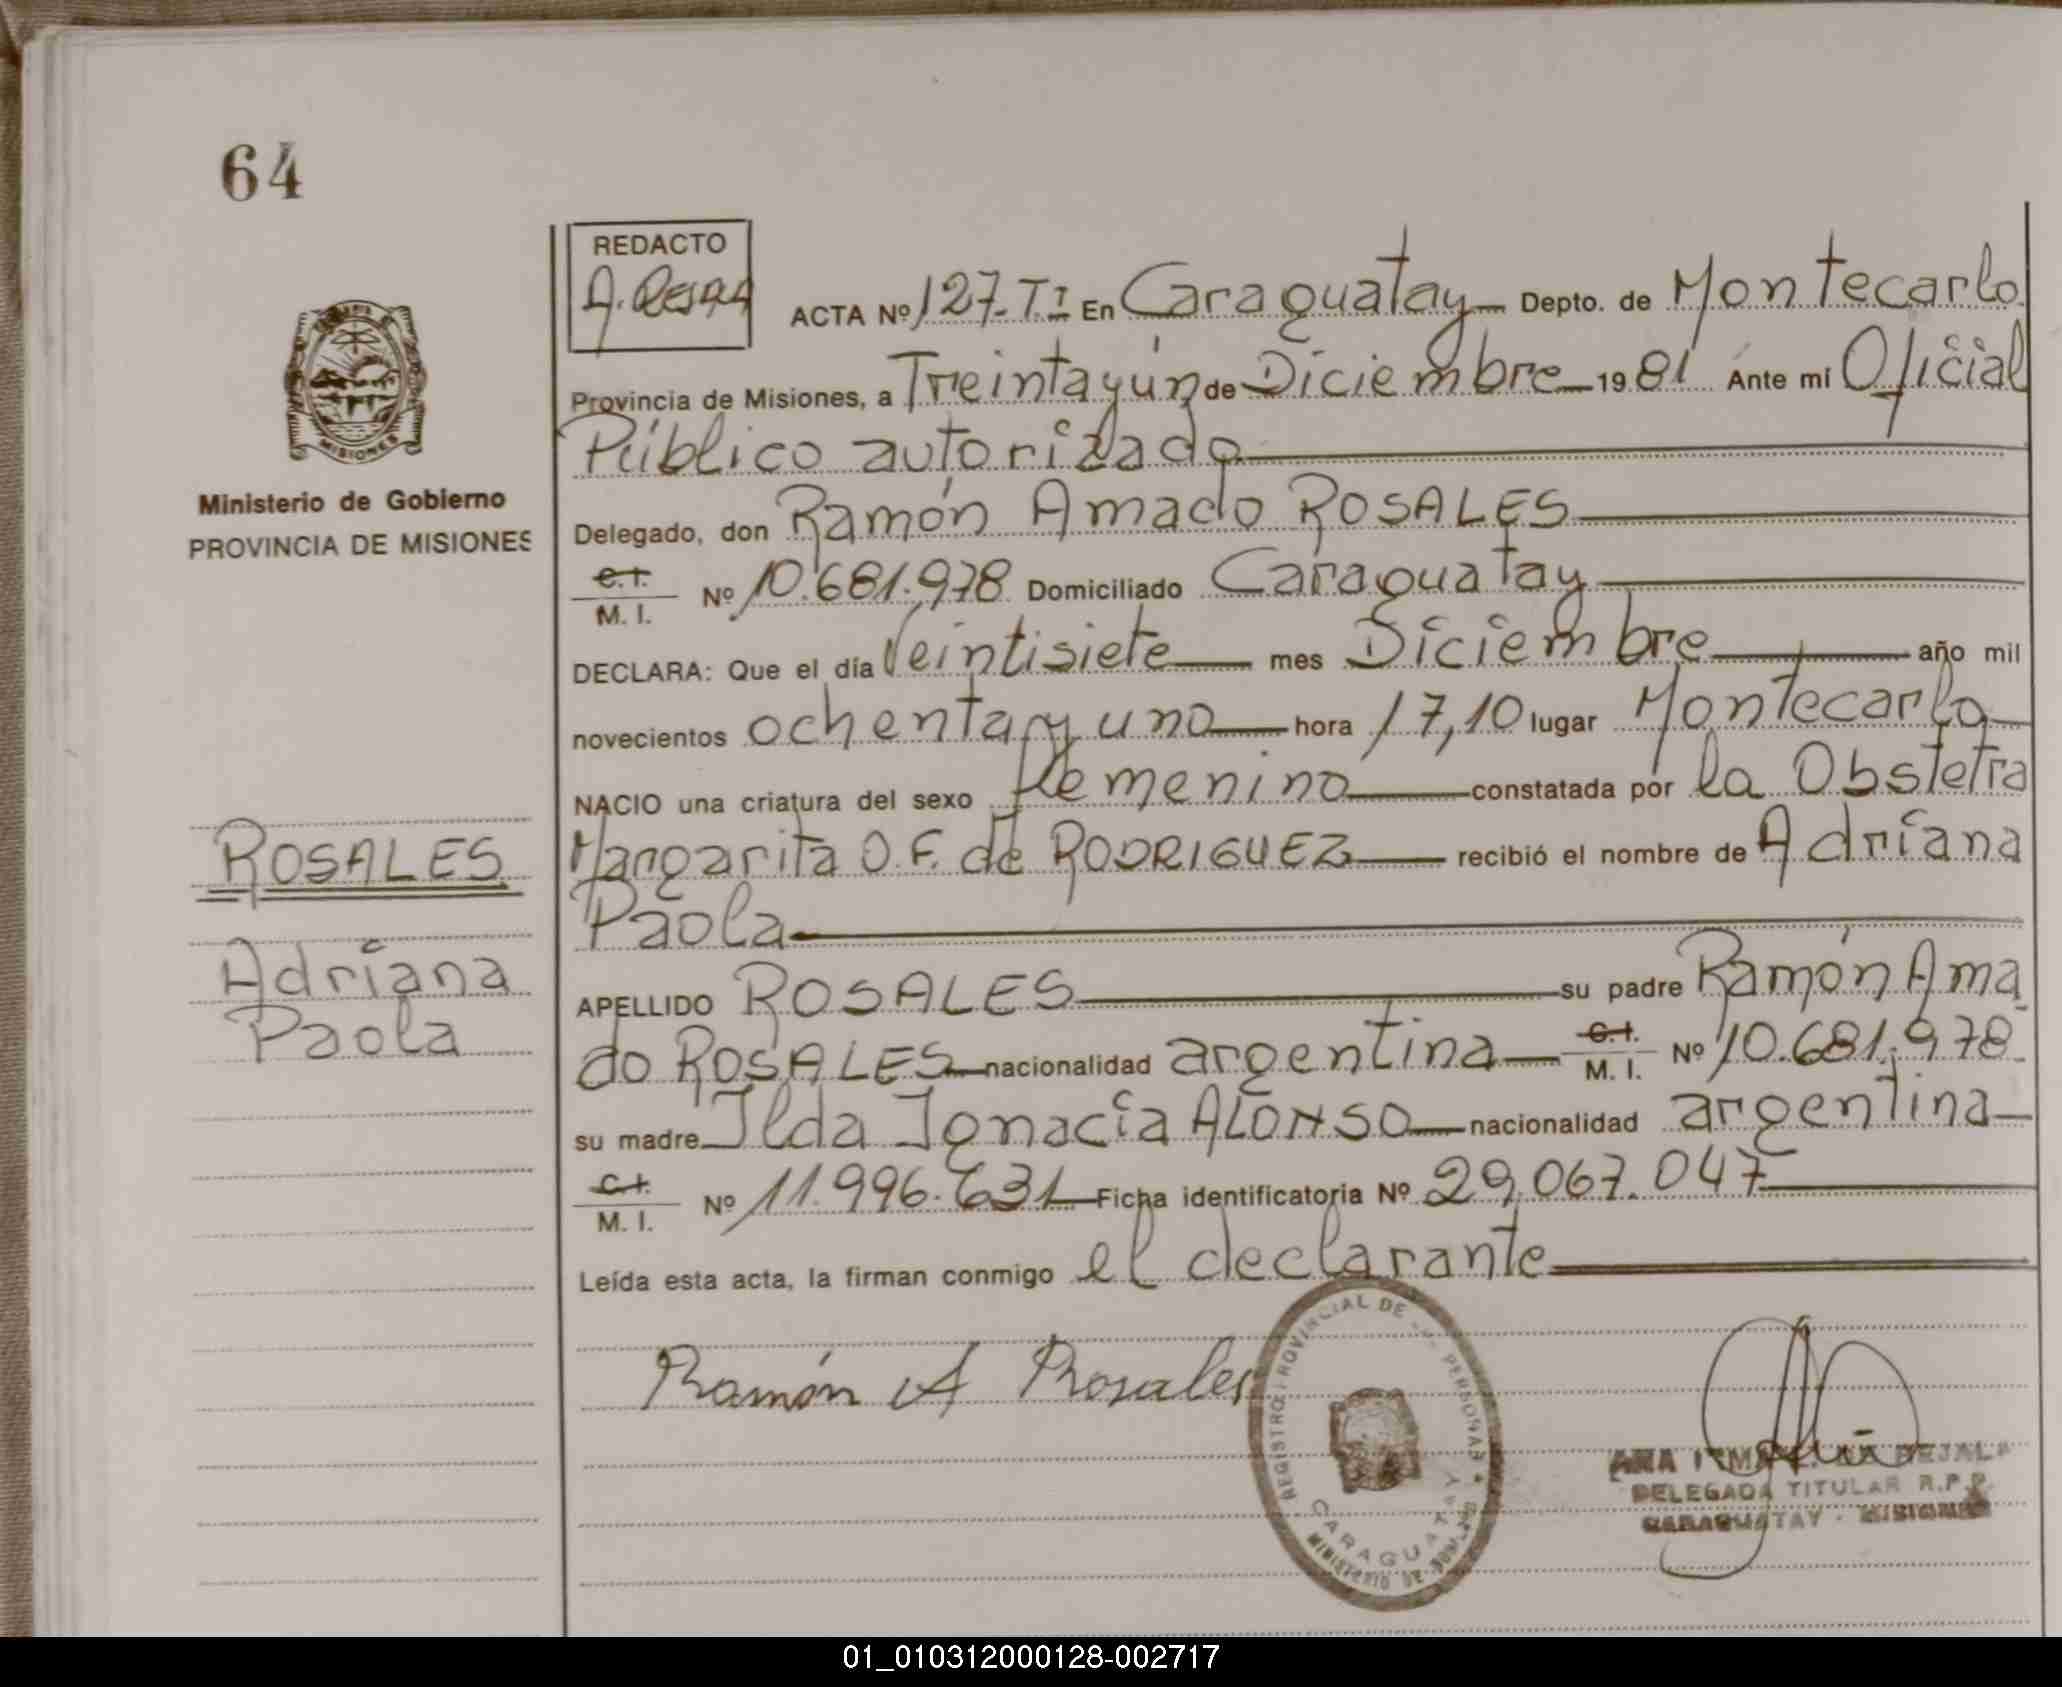 64
REDACTO
ACTA Nº 127-T.I En Caraguatay Depto. de Montecarlo
Provincia de Misiones, a Treintayún de Diciembre 1981 Ante mí Oficial
Público autorizado
Delegado, don Ramón Amado ROSALES
C.I.
M. I. Nº 10.681.978 Domiciliado Caraguatay
DECLARA: Que el día Veintisiete mes Diciembre año mil
novecientos ochenta y uno hora 17,10 lugar Montecarlo
NACIO una criatura del sexo femenino constatada por la Obstetra
Margarita O.F. de RODRIGUEZ recibió el nombre de Adriana
Paola
APELLIDO ROSALES su padre Ramón Ama
do ROSALES nacionalidad argentina C.I. M. I. Nº 10.681.978
su madre Ilda Ignacia ALONSO nacionalidad argentina
C.I.
M. I. Nº 11.996.631 Ficha identificatoria Nº 29.067.047
Leída esta acta, la firman conmigo el declarante
Ramón A Rosales
MISIONES
Ministerio de Gobierno
PROVINCIA DE MISIONES
ROSALES
Adriana
Paola
REGISTRO PROVINCIAL DE PERSONAS
CARAGUATAY
MINISTERIO DE
ANA
DELEGADA TITULAR R.P.P.
CARAGUATAY - MISIONES
01_010312000128-002717